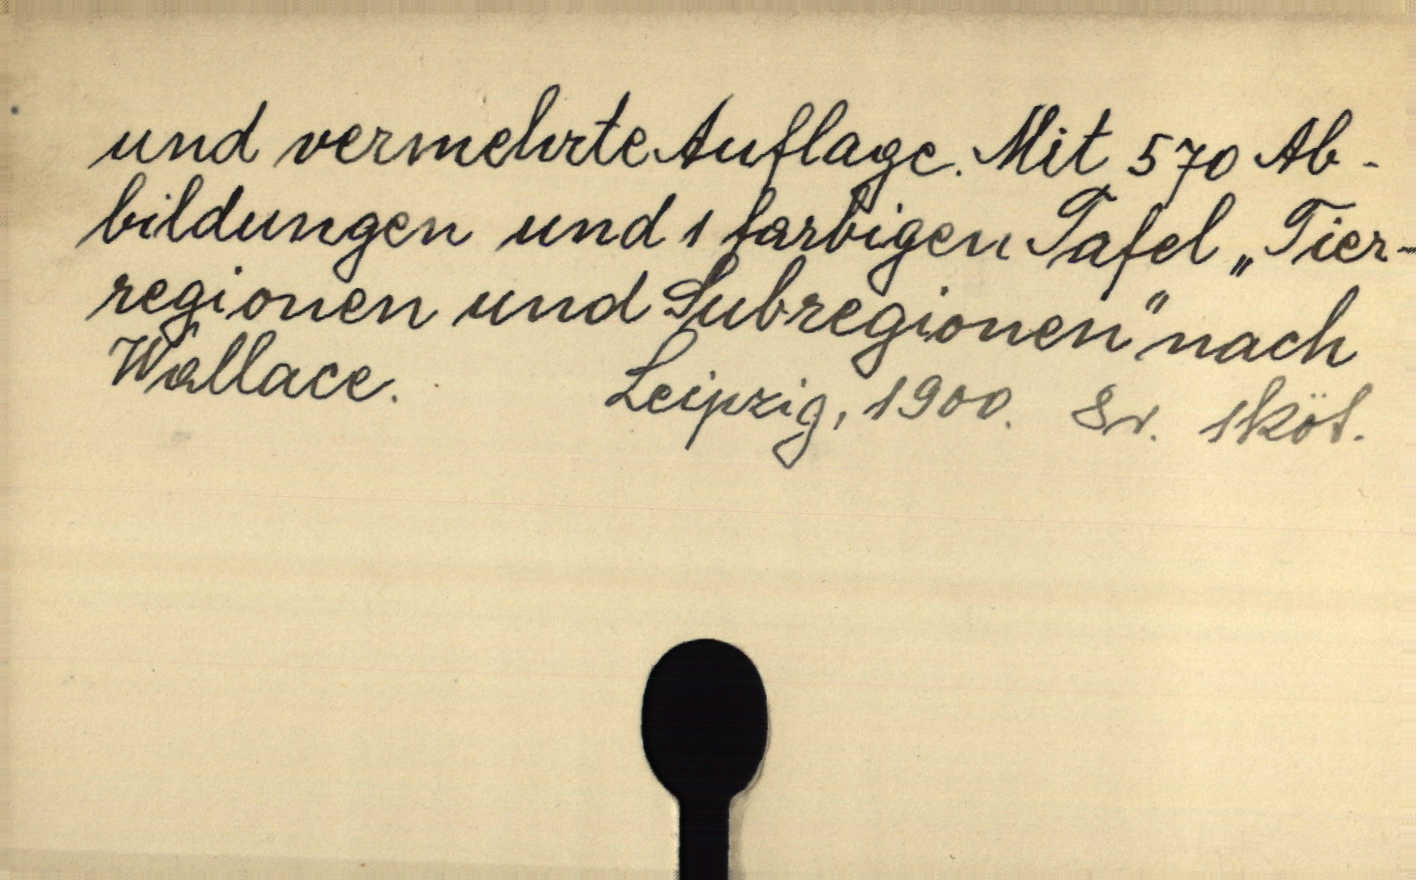 und vermehrte Auflage. Mit 570 Ab-
bildungen und 1 farbigen Tafel „Tier-
regionen und Subregionen" nach
Wallace. Leipzig, 1900. 8r. 1 köt.